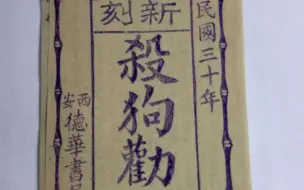 民國三十年
新刻
殺狗勸
西安
德華書局